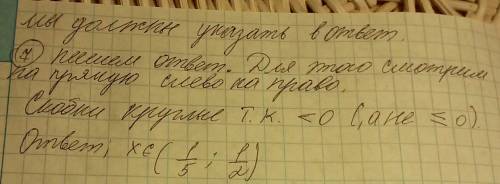 мы должны указать в ответ.
⑦ пишем ответ. Для того смотрим
на прямую слево на право.
Скобки круглые т.к. <0 (, а не ≤0).
Ответ, x∈(1/5; 1/2)